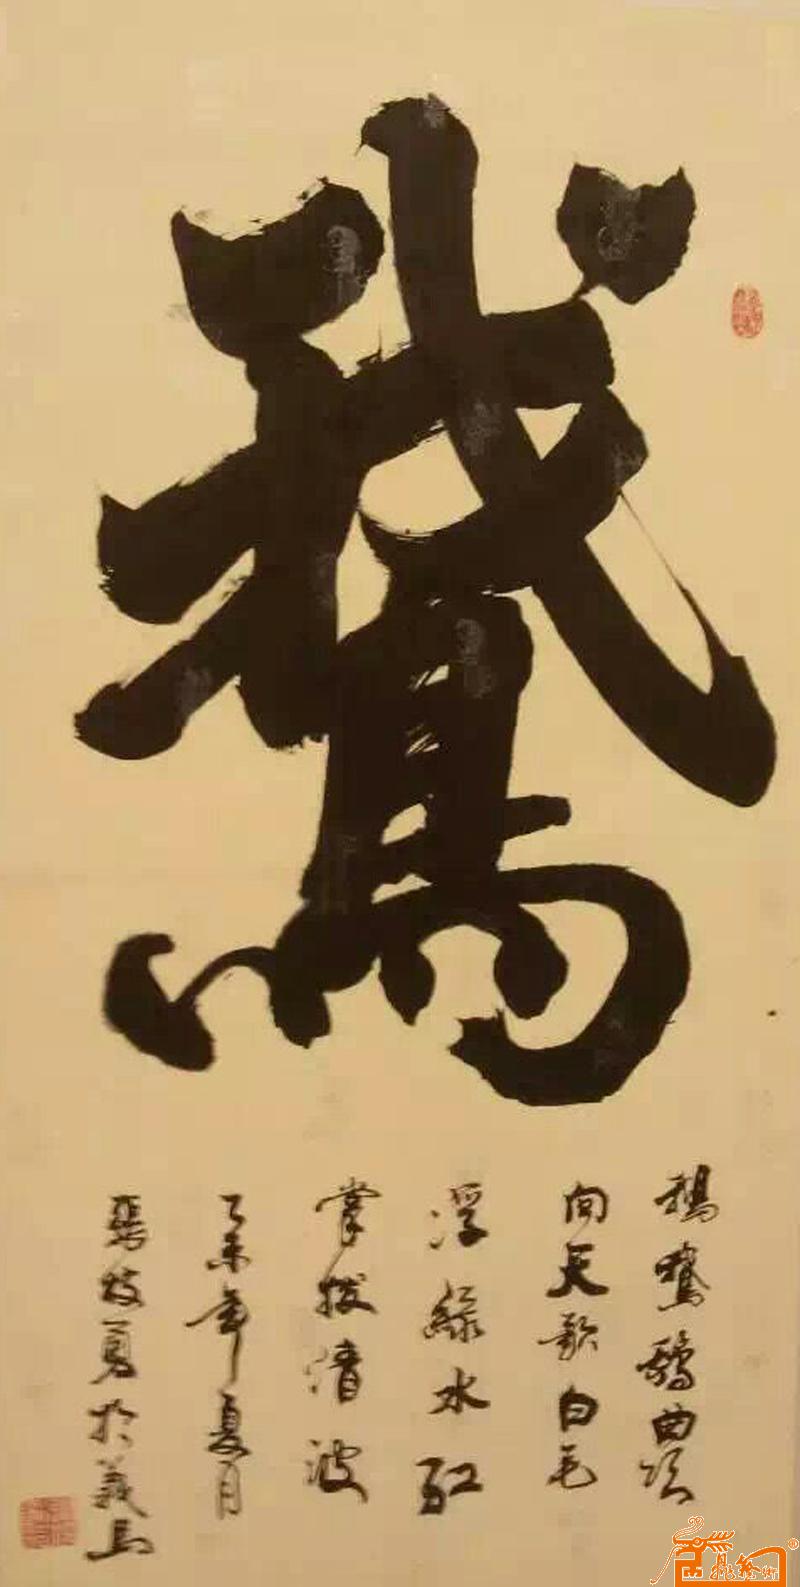 鵞
鵝鵞鵝曲項
向天歌白毛
浮綠水紅
掌撥清波
乙未年夏月
勇於義馬